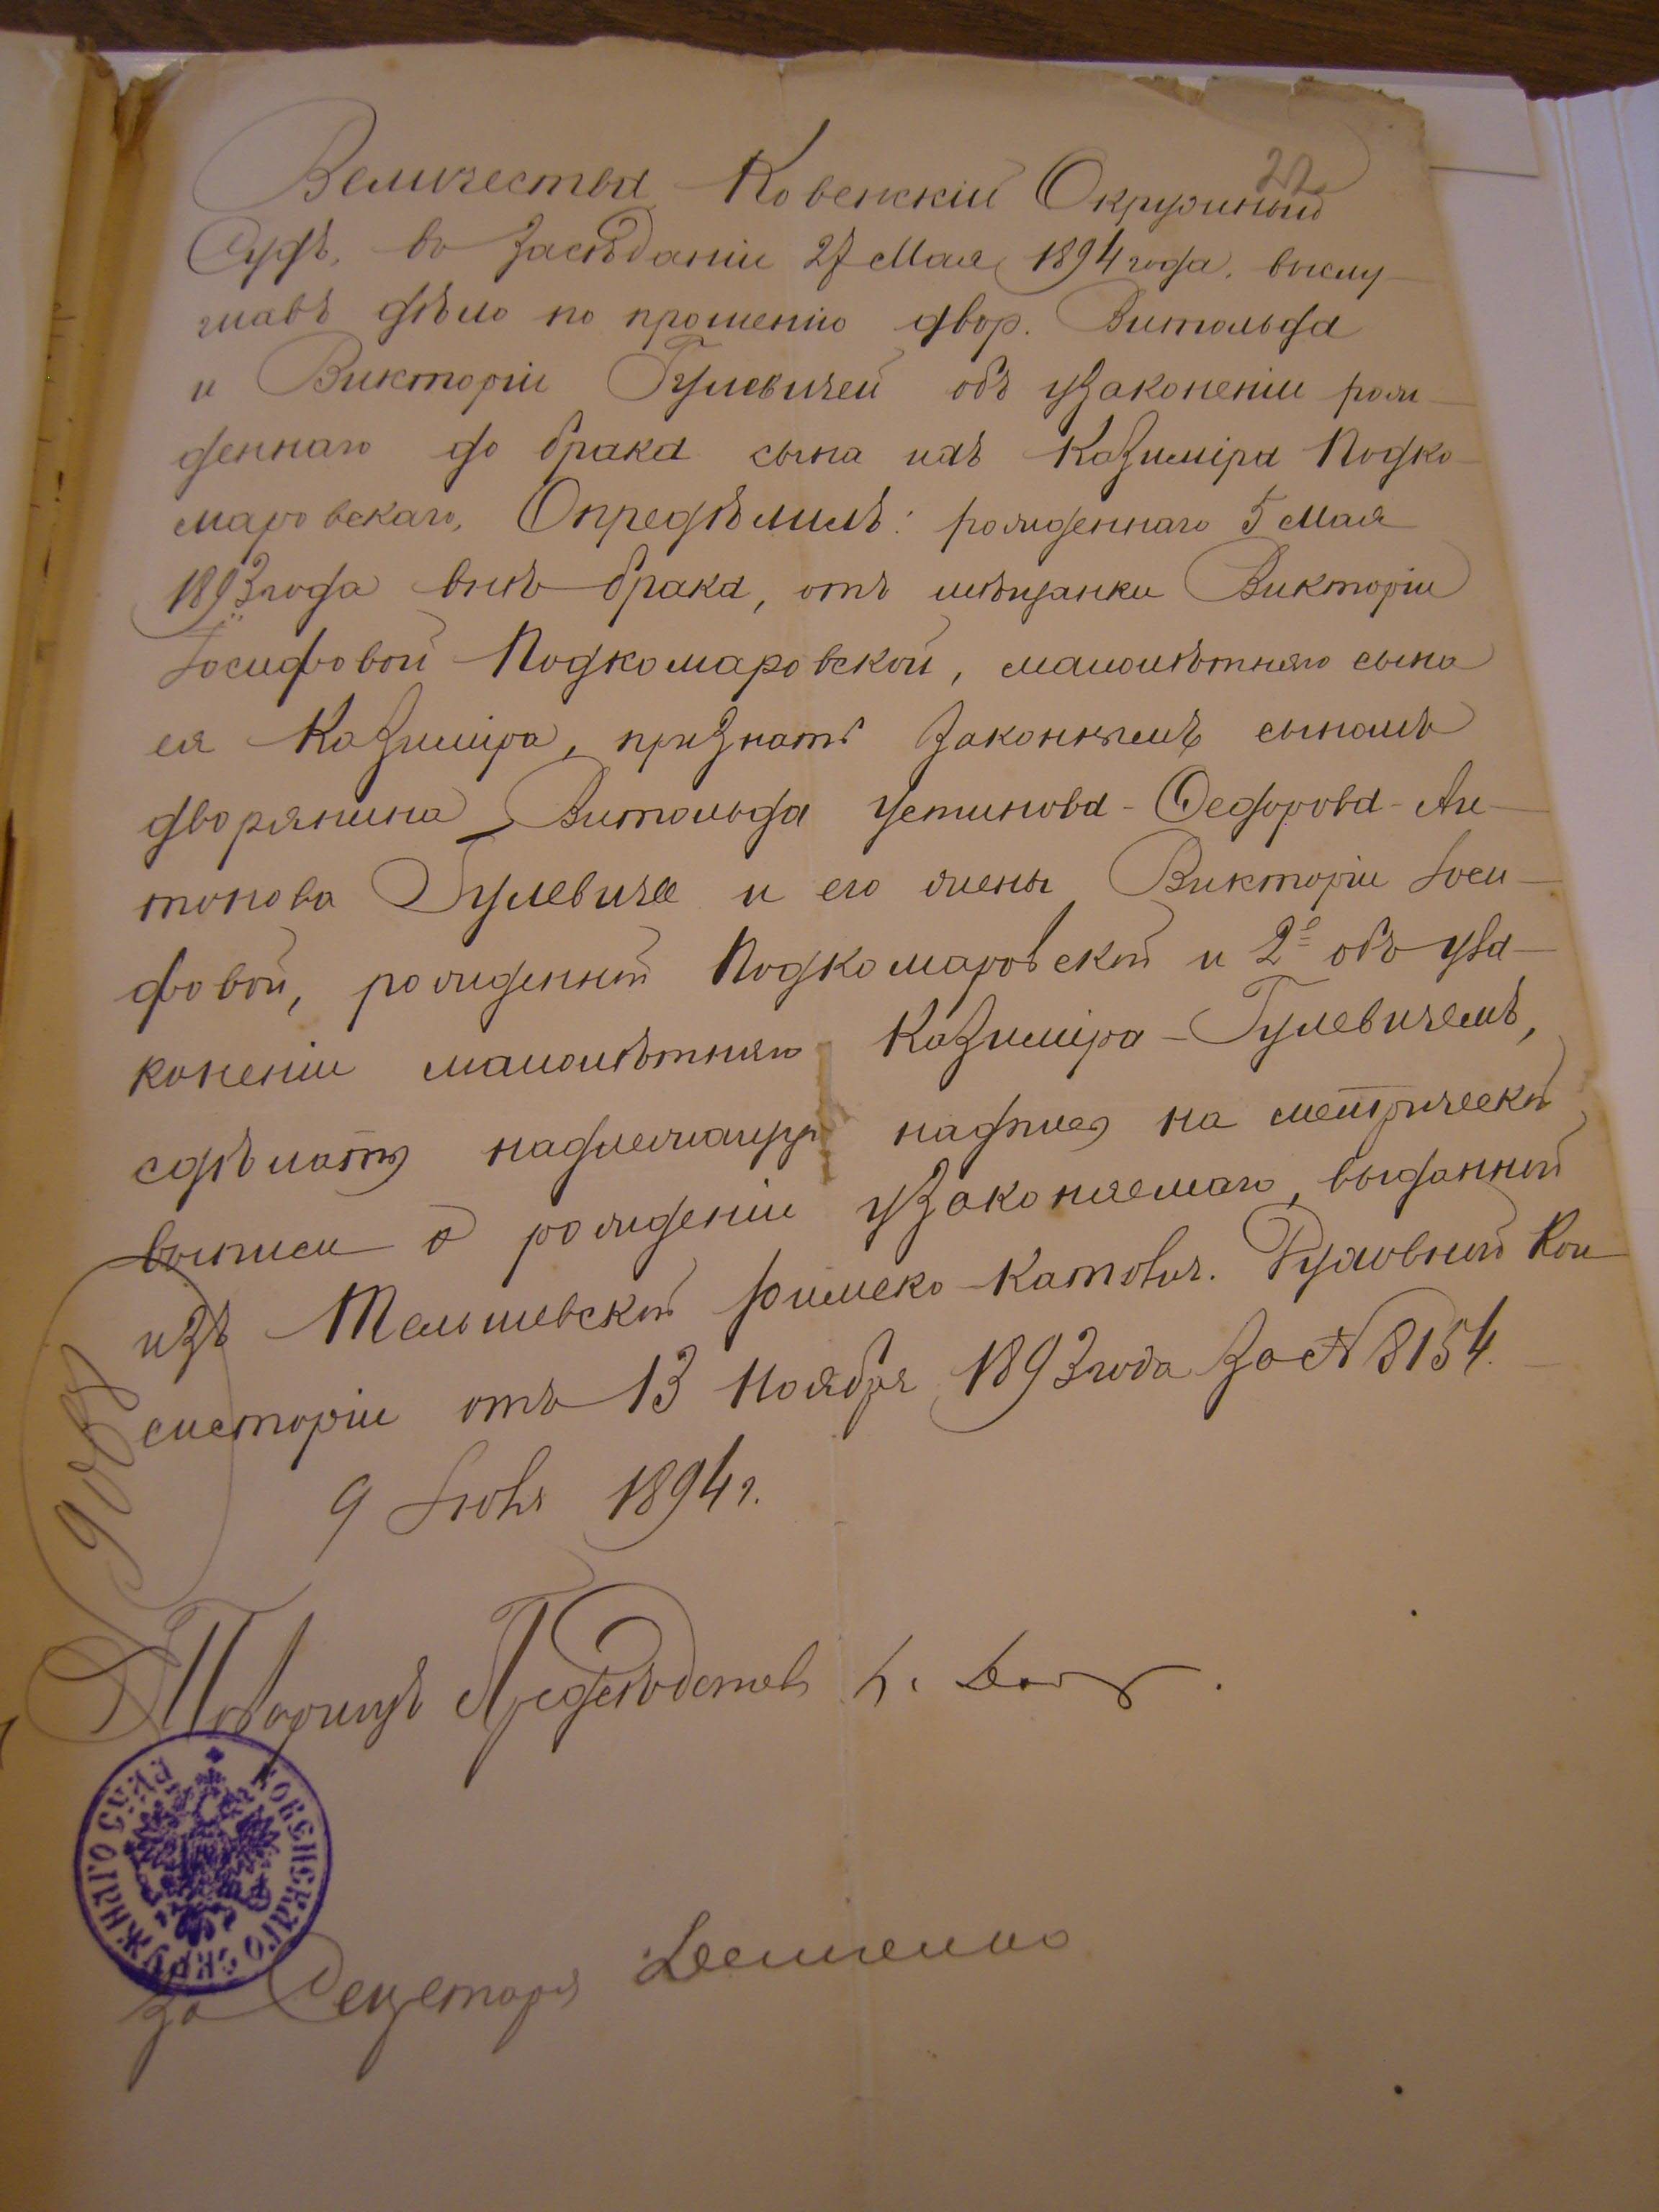 22
Величества Ковенскій Окружный
Судъ, во засѣданіи 27 Мая 1894 года, выслу-
шавъ дѣло по прошенію двор. Витольда
и Викторіи Гулевичей объ узаконеніи рож-
деннаго до брака сына ихъ Казиміра Подко-
маровскаго, Опредѣлилъ: рожденнаго 5 Мая
1893 года внѣ брака, отъ мѣщанки Викторіи
Іосифовой Подкомаровской, малолѣтняго сына
ея Казиміра, признать законнымъ сыномъ
дворянина Витольда Устинова-Федорова-Ан-
тонова Гулевича и его жены Викторіи Іоси-
фовой, рожденной Подкомаровской и 2е объ уза-
коненіи малолѣтняго Казиміра-Гулевичемъ,
сдѣлать надлежащую надпись на метрической
выписи о рожденіи узаконяемаго, выданной
изъ Тельшевской Римско-Католич. Духовной Кон-
систоріи отъ 13 Ноября 1893 года за № 8154.
9 Іюня 1894 г.
Товарищъ Предсѣдателя
КОВЕНСКАГО ОКРУЖНАГО СУДА
За Секретаря